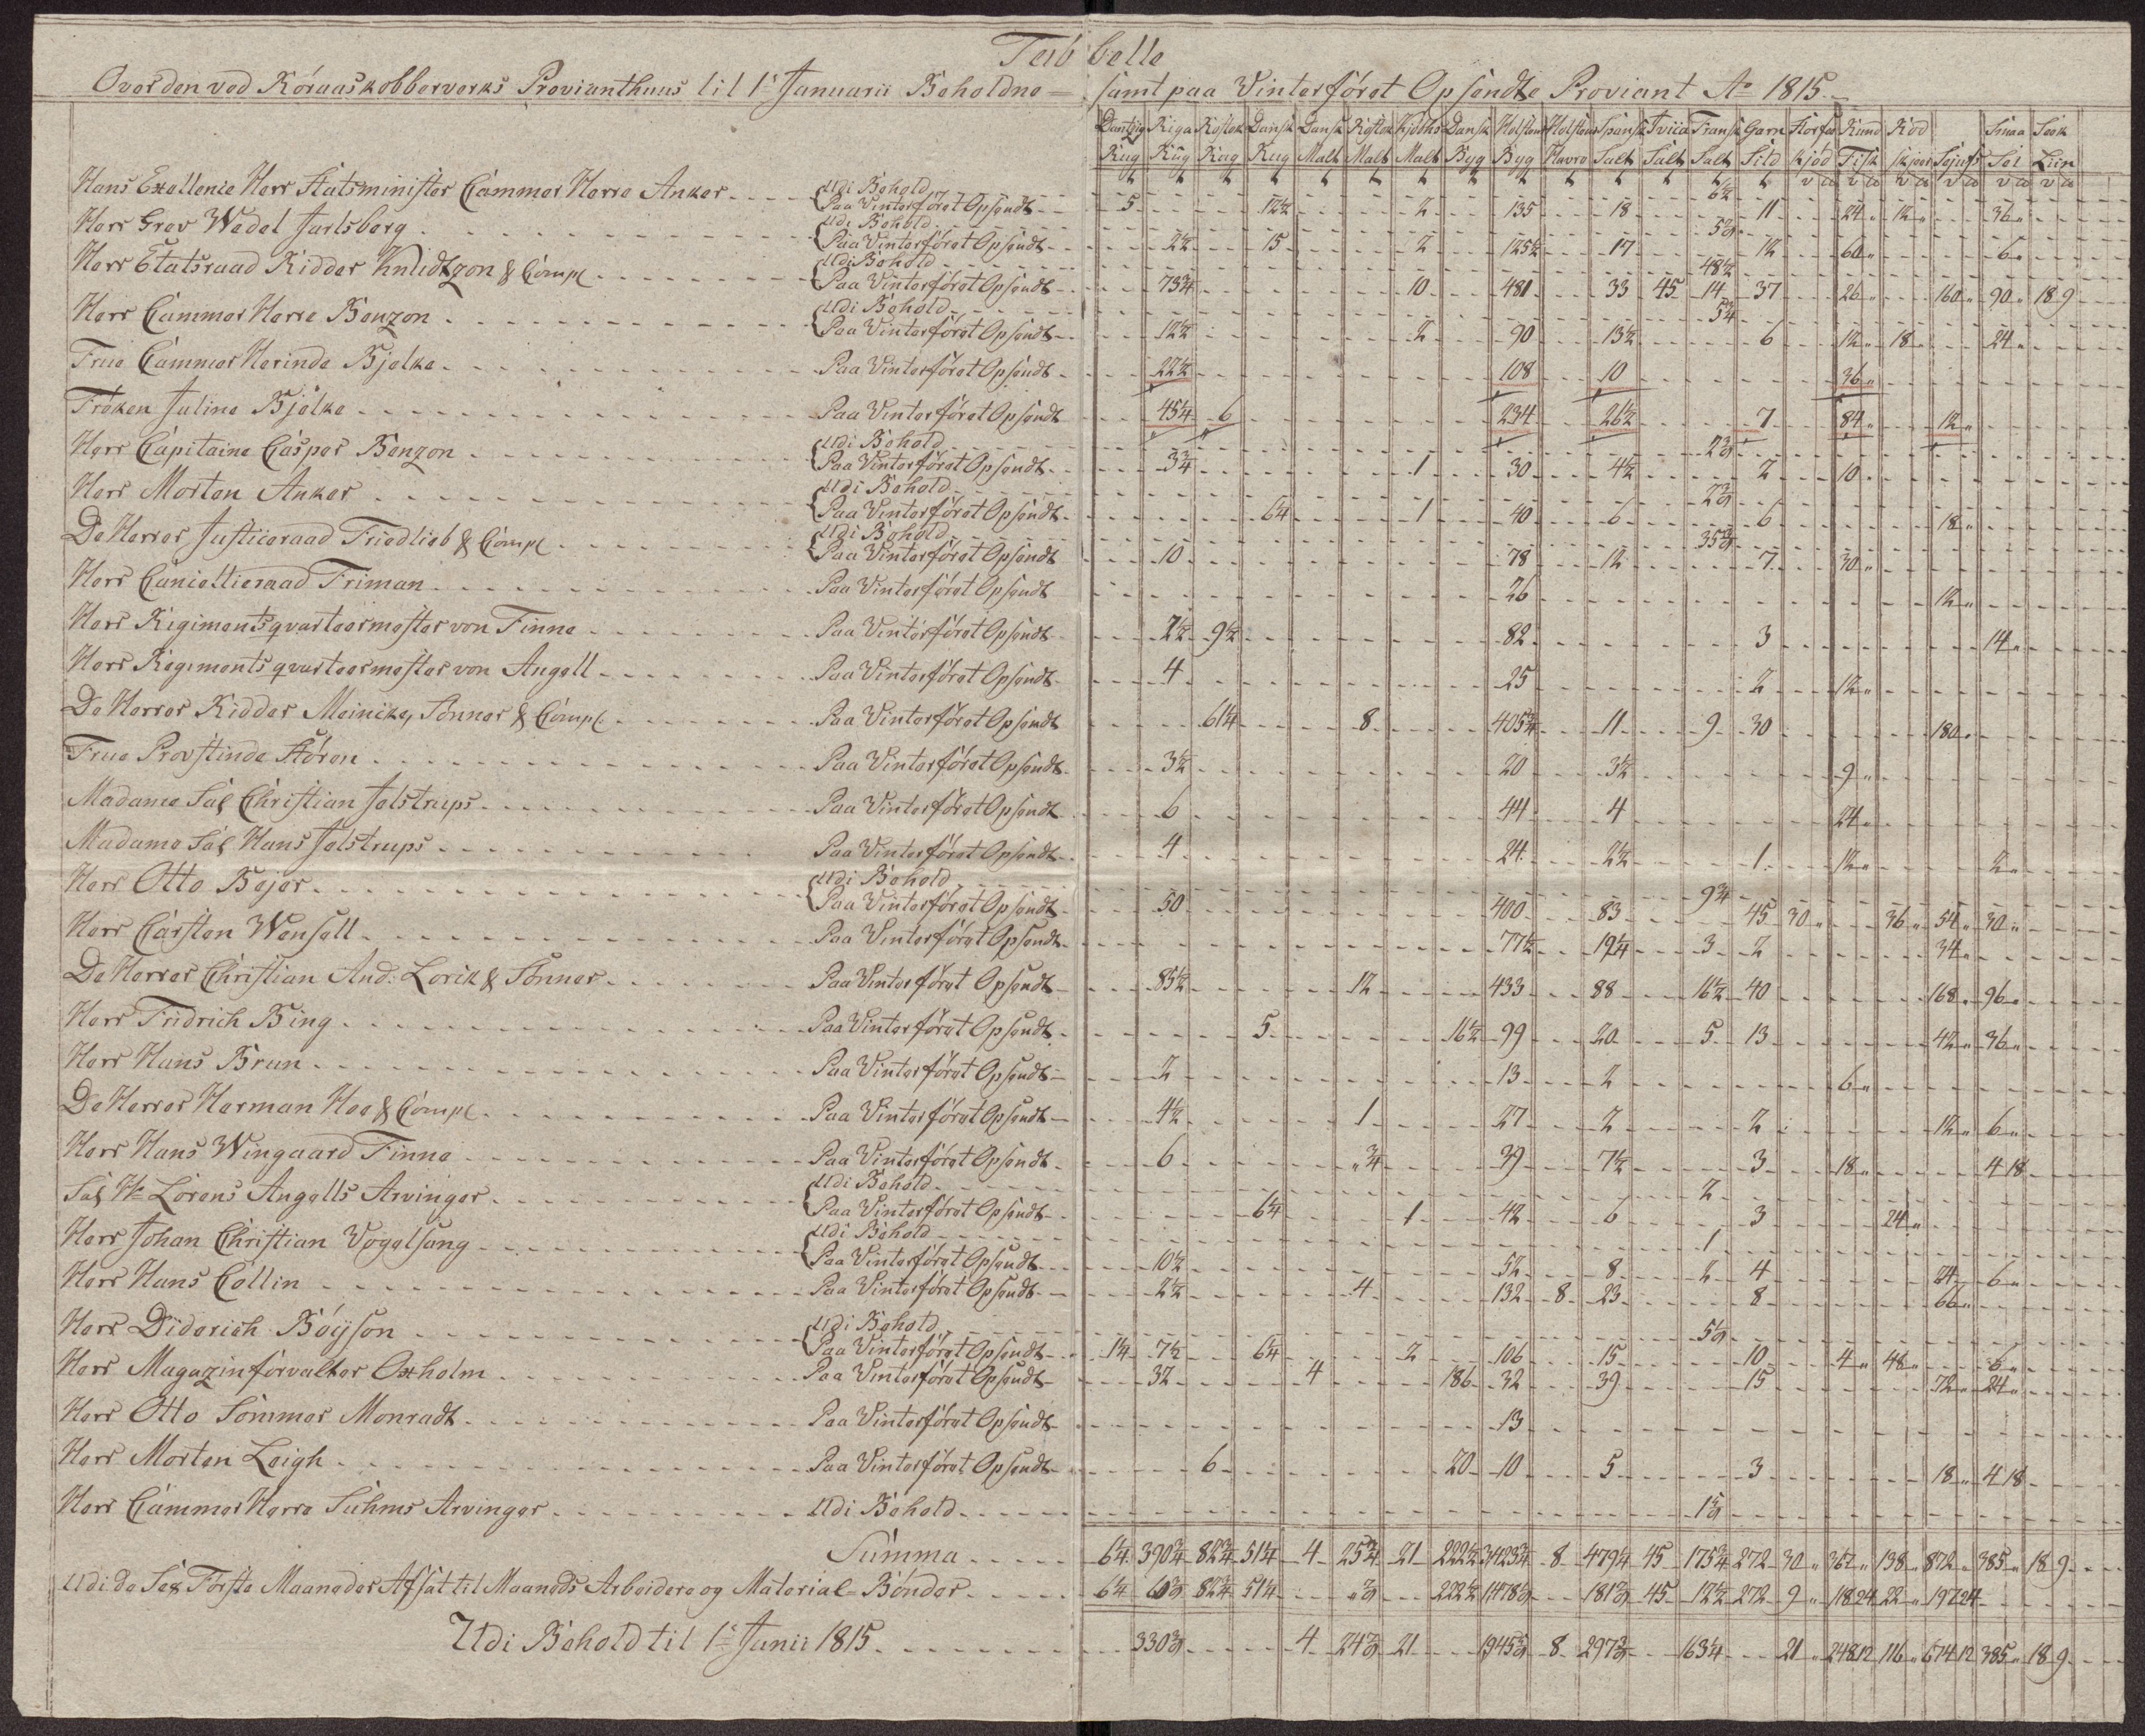 Tabbelle
Over den ved Röraas kobberverks Provianthuus til 1ste Januarii Beholdne — samt paa Vinterföret Opsendte Proviant Ao 1815.
Dantzig Riga Rostok Dansk Dansk Rostok Dansk Holstens Holstens Spansk Tviis Fransk Garn Storfæ Rund Köd Smaa Seek
Rug Rug Rug Rug Malt Malt Malt Byg Byg Havre Salt Salt Salt Sild kjöd Fisk Sejufs Sei Liin
Hans Exellence Herr Statsminister Cammer Herre Anker Udi Behold 6½
Paa Vinterföret Opsendt 5 12½ 2 135 18 11 24 „ 12 „ 36 „
Herr Grev Wedel Jarlsberg Udi Behold
Paa Vinterföret Opsendt 2½ 15 2 125½ 17 12 60 „ 6 „
Herr Etatsraad Ridder Knudtzon & Comp Udi Behold 48½
Paa Vinterföret Opsendt 73¾ 10 481 33 45 14 37 26 „ 160 „ 90 „ 18 9
Herr Cammer Herre Benzon Udi Behold 5¾
Paa Vinterföret Opsendt 12½ 2 90 13½ 6 12 „ 18 „ 24 „
Frue Cammer Herinde Bjelke Paa Vinterföret Opsendt 22½ 108 10 36 „
Fröken Juline Bjelke Paa Vinterföret Opsendt 45¼ 6 234 26½ 7 84 „ 12 „
Herr Capitaine Casper Benzon Udi Behold
Paa Vinterföret Opsendt 3¾ 1 30 4½ 2 10 „
Herr Morten Anker Udi Behold
Paa Vinterföret Opsendt 6¼ 1 40 6 6 18 „
De Herrer Justiceraad Friedlieb & Comp Udi Behold
Paa Vinterföret Opsendt 10 78 12 7 30 „
Herr Cancellieraad Friman Paa Vinterföret Opsendt 26 12 „
Herr Rigimentsqvarteermester von Finne Paa Vinterföret Opsendt 7½ 9½ 82 3 14 „
Herr Regimentsqvarteermester von Angell Paa Vinterföret Opsendt 4 25 2 12 „
De Herrer Ridder Meinike, Sönner & Comp Paa Vinterföret Opsendt 61¼ 8 405¾ 11 9 30 180 „
Frue Provstinde Stören Paa Vinterföret Opsendt 3½ 20 3½ 9 „
Madame Sal Christian Jelstrups Paa Vinterföret Opsendt 6 44 4 24 „
Madame Sal Hans Jelstrups Paa Vinterföret Opsendt 4 24 2½ 1 12 „ 2 „
Herr Otto Bejer Udi Behold 9¾
Paa Vinterföret Opsendt 50 400 83 45 30 „ 36 „ 54 „ 30 „
Herr Carsten Wensell Paa Vinterföret Opsendt 77½ 19¼ 3 2 34 „
De Herrer Christian And: Lorik & Sönner Paa Vinterföret Opsendt 85½ 12 433 88 16½ 40 168 „ 96 „
Herr Fridrich Bing Paa Vinterföret Opsendt 5 16½ 99 20 5 13 42 „ 36 „
Herr Hans Brun Paa Vinterföret Opsendt 2 13 2 6 „
De Herrer Herman Hoe & Comp Paa Vinterföret Opsendt 4½ 1 27 2 2 12 „ 6 „
Herr Hans Wingaard Finne Paa Vinterföret Opsendt 6 „¾ 39 7½ 3 18 „ 4 18
Sal Hr Lorens Angells Arvinger Udi Behold 2
Paa Vinterföret Opsendt 6¼ 1 42 6 3 24 „
Herr Johan Christian Vogelsang Udi Behold 1
Paa Vinterföret Opsendt 10½ 52 8 2 4 24 „ 6 „
Herr Hans Collin Paa Vinterföret Opsendt 2½ 4 132 8 23 8 66 „
Herr Diderich Böyson Udi Behold
Paa Vinterföret Opsendt 1¼ 7½ 6¼ 2 106 15 10 4 „ 48 „ 6 „
Herr Magazinforvalter Oxholm Paa Vinterföret Opsendt 32 4 186 32 39 15 72 „ 24 „
Herr Otto Sommer Monradt Paa Vinterföret Opsendt 13
Herr Morten Leigh Paa Vinterföret Opsendt 6 20 10 5 3 18 „ 4 18
Herr Cammer Herre Suhms Arvinger Udi Behold
Summa 6¼ 390¾ 82¾ 51¼ 4 25¾ 21 222½ 3423¾ 8 479¼ 45 175¾ 272 30 „ 367 „ 138 „ 872 „ 385 „ 18 9
Udi de Sex Förste Maaneder Afsat til Maaneds Arbeidere og Material-Bönder 6¼ 82¾ 51¼ 222½ 45 12½ 272 9 „ 118 24 22 „ 197 24
Udi Behold til 1ste Junii 1815 4 21 8 163¼ 21 „ 248 12 116 „ 674 12 385 „ 18 9